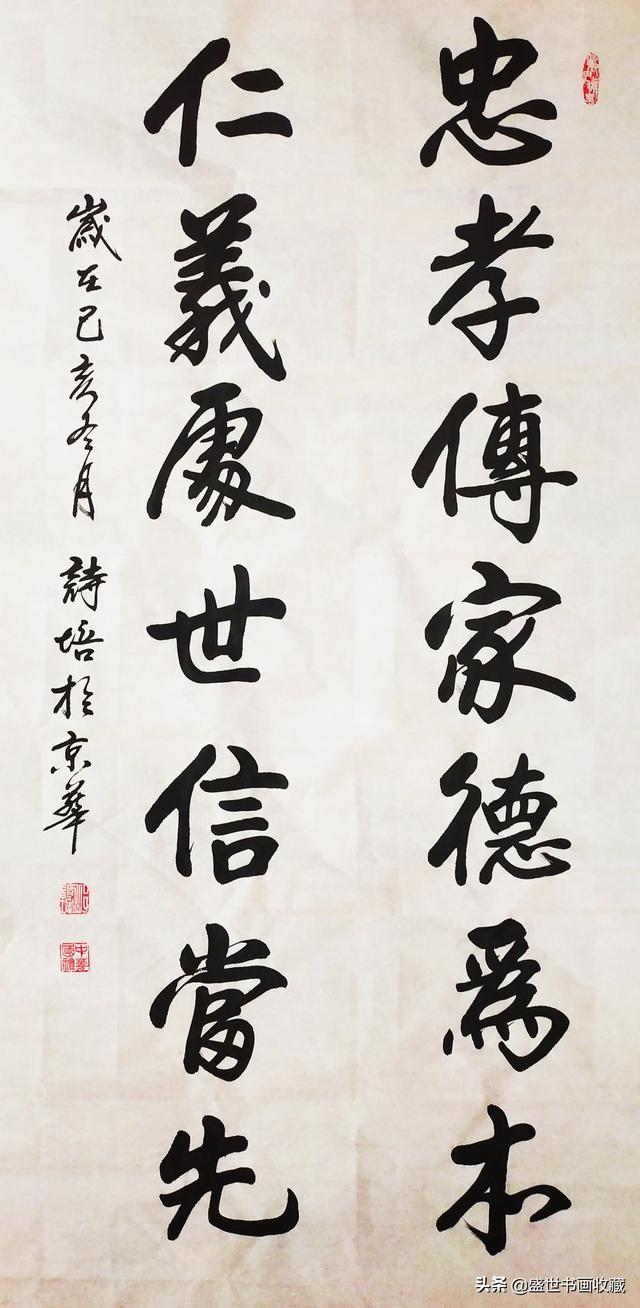 忠孝傳家德為本
仁義處世信當先
歲在己亥冬月 詩培於京華
头条 @盛世书画收藏